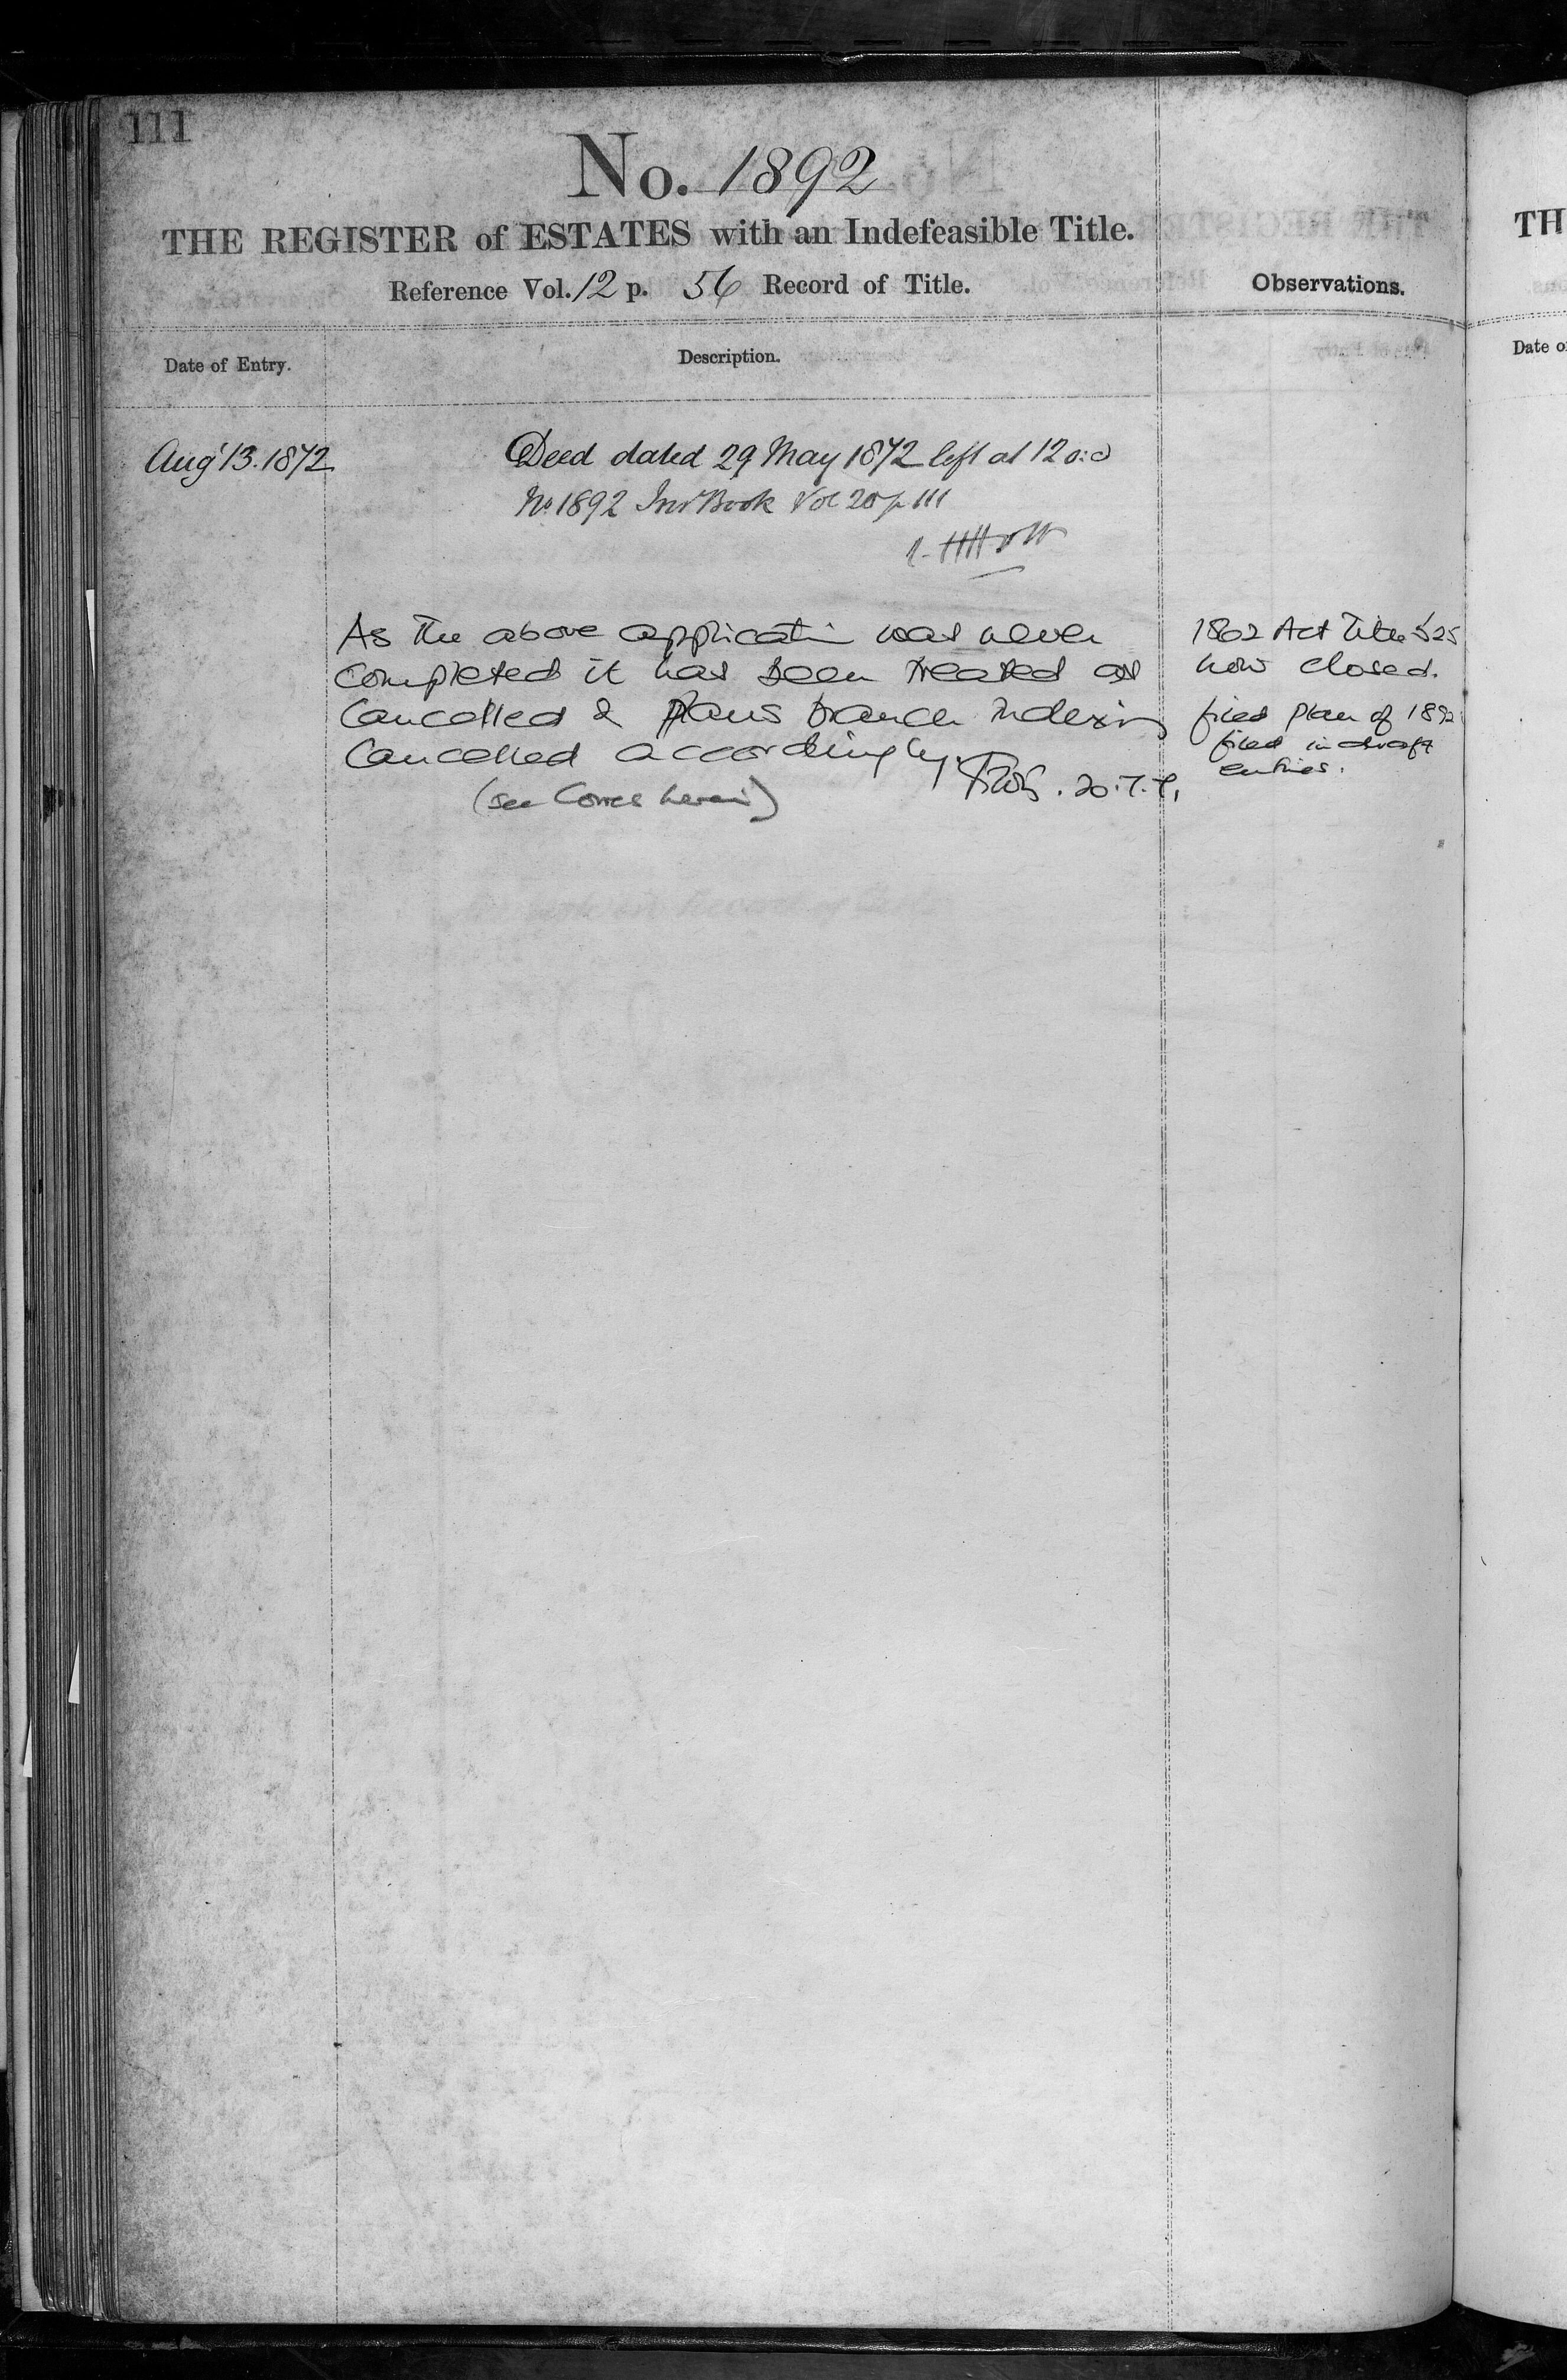 111
No. 1892
THE REGISTER of ESTATES with an Indefeasible Title.
Reference Vol. 12 p. 56 Record of Title.
Observations.
Date of Entry.
Description.
Augt 13. 1872
Deed dated 29 May 1872 left at 12 o:c
No 1892 Book Vol 20 p 111
As the above application was never
completed it has been treated as
Cancelled & Plans branch indexing
Cancelled accordingly.
(see Corres herein)
20.7.
1862 Act Title 525
now closed.
filed plan of 1892
filed in draft
entries.
TH
Date o